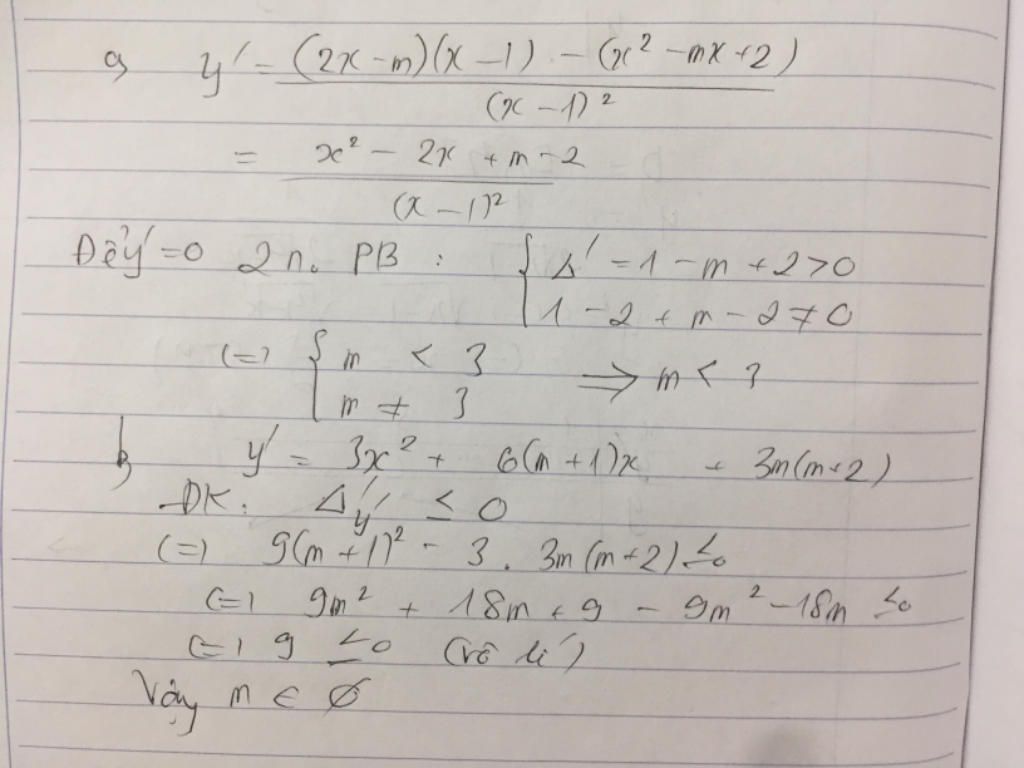 a, y' = (2x - m)(x - 1) - (x² - mx + 2) / (x - 1)²
= x² - 2x + m - 2 / (x - 1)²
Để y' = 0 2 n. PB : { Δ' = 1 - m + 2 > 0
1 - 2 + m - 2 ≠ 0
(=) { m < 3
m ≠ 3 => m < 3
b, y' = 3x² + 6(m + 1)x + 3m(m + 2)
ĐK: Δ'y' ≤ 0
(=) 9(m + 1)² - 3 . 3m(m + 2) ≤ 0
(=) 9m² + 18m + 9 - 9m² - 18m ≤ 0
(=) 9 ≤ 0 (vô lí)
Vậy m ∈ ∅